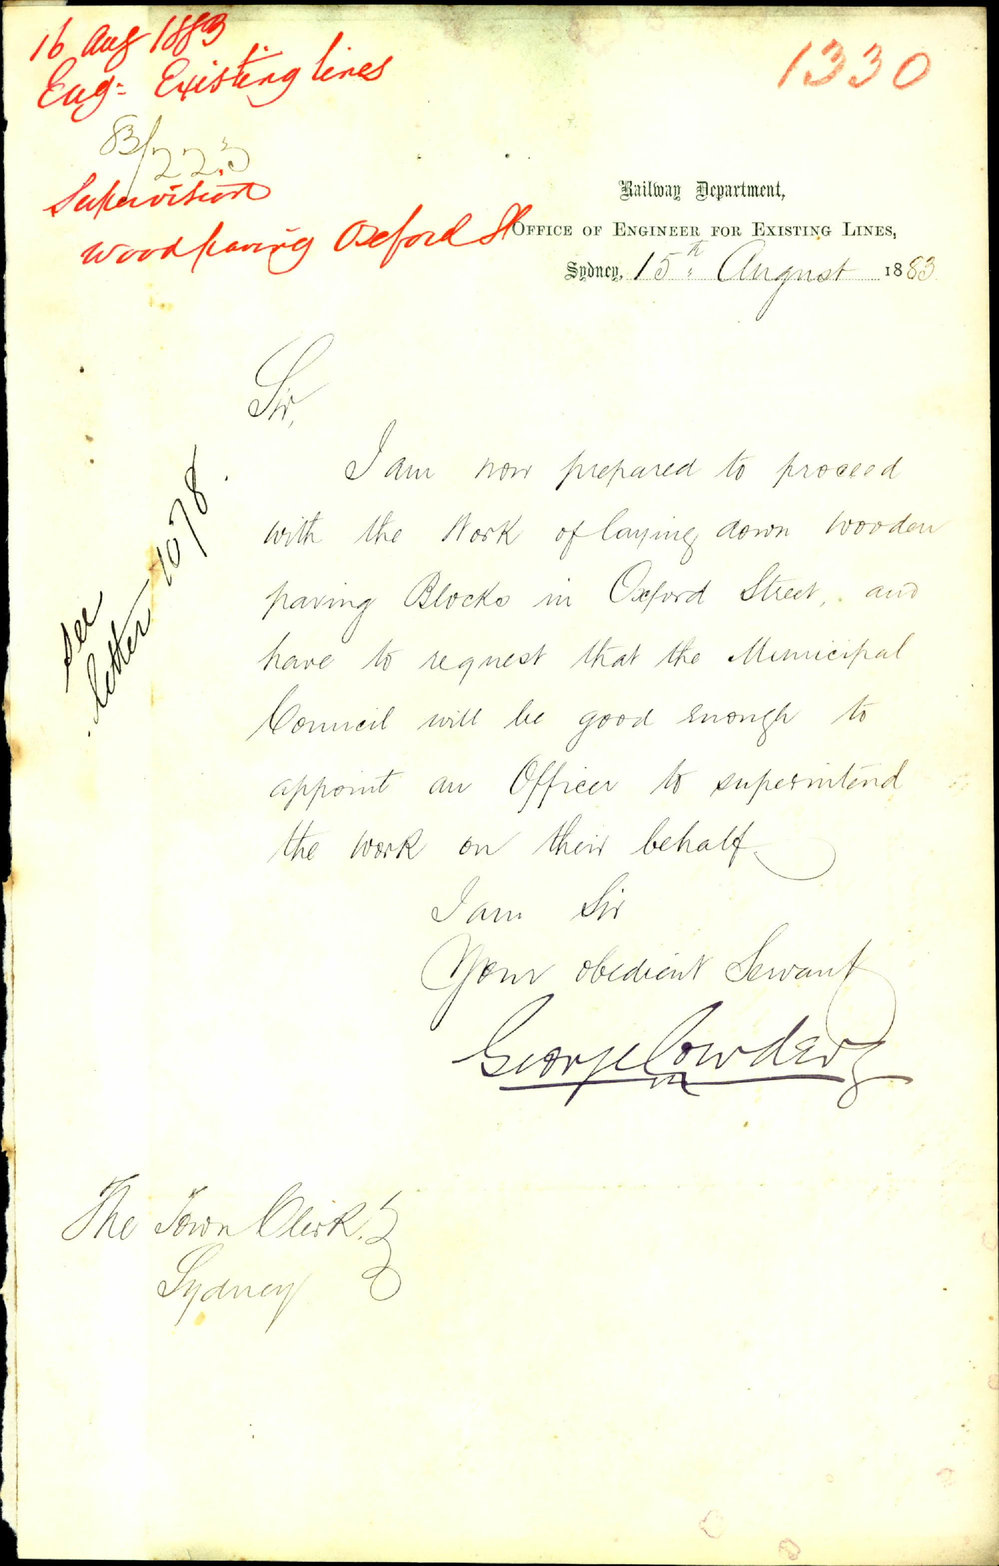 16 Aug 1883
Eng: Existing lines
83/223
Supervision
Woodpaving Oxford St
1330
Railway Department,
Office of Engineer for Existing Lines,
Sydney, 15th August 1883
Sir,
I am now prepared to proceed
with the Work of laying down wooden
paving Blocks in Oxford Street, and
have to request that the Municipal
Council will be good enough to
appoint an Officer to superintend
the work on their behalf
I am Sir
Your obedient Servant
George Cowdery
see
letter 1078.
The Town Clerk.
Sydney